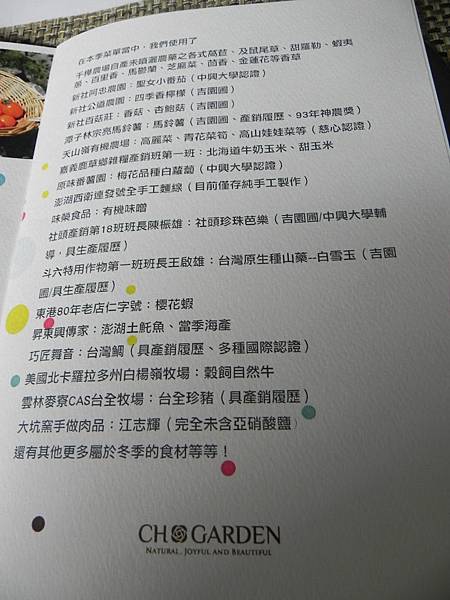 在本季菜單當中，我們使用了
千樺農場自產未噴灑農藥之各式萵苣、及鼠尾草、甜羅勒、蝦夷
蔥、百里香、馬鬱蘭、芝麻菜、茴香、金蓮花等香草
新社同忠農園：聖女小番茄（中興大學認證）
新社公道農園：四季香檸檬（吉園圃）
新社百菇莊：香菇、杏鮑菇（吉園圃）
潭子林炎亮馬鈴薯：馬鈴薯（吉園圃、產銷履歷、93年神農獎）
天山嶺有機農場：高麗菜、青花菜筍、高山娃娃菜等（慈心認證）
嘉義鹿草鄉雜糧產銷班第一班：北海道牛奶玉米、甜玉米
原味番薯園：梅花品種白蘿蔔（中興大學認證）
澎湖西衛連發號全手工麵線（目前僅存純手工製作）
味榮食品：有機味噌
社頭產銷第18班班長陳振雄：社頭珍珠芭樂（吉園圃/中興大學輔
導，具生產履歷）
斗六特用作物第一班班長王啟雄：台灣原生種山藥--白雪玉（吉園
圃/具生產履歷）
東港80年老店仁字號：櫻花蝦
昇東興傳家：澎湖土魠魚、當季海產
巧匠舞音：台灣鯛（具產銷履歷、多種國際認證）
美國北卡羅拉多州白楊嶺牧場：穀飼自然牛
雲林麥寮CAS台全牧場：台全珍豬（具產銷履歷）
大坑窯手做肉品：江志輝（完全未含亞硝酸鹽）
還有其他更多屬於冬季的食材等等！
CH GARDEN
NATURAL, JOYFUL AND BEAUTIFUL